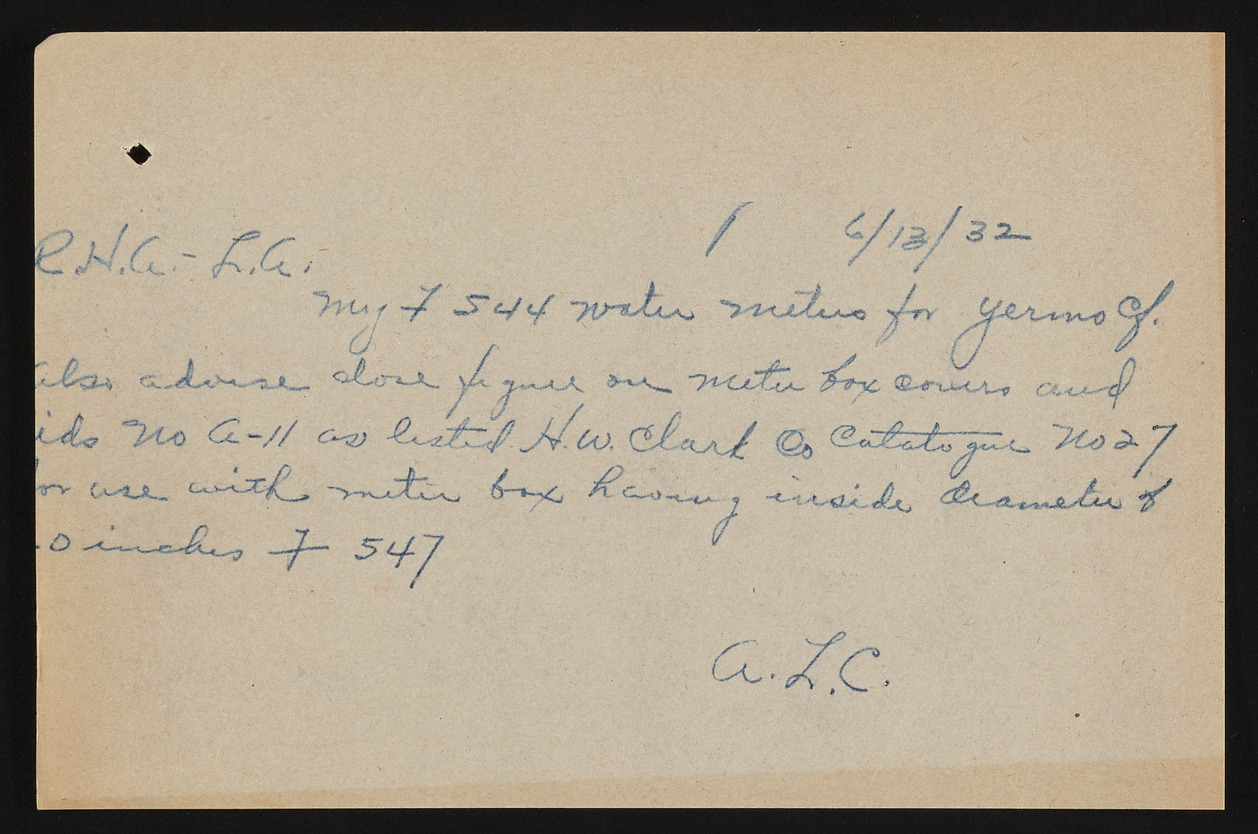 / 6/13/32
R.H.A. - L.A.
My F 544 water meters for Yermo Cf.
also advise close figure on meter box covers and
ids No A-11 as listed H.W. Clark Co Catalogue No 27
for use with meter box having inside diameter of
0 inches F 547
A.L.C.